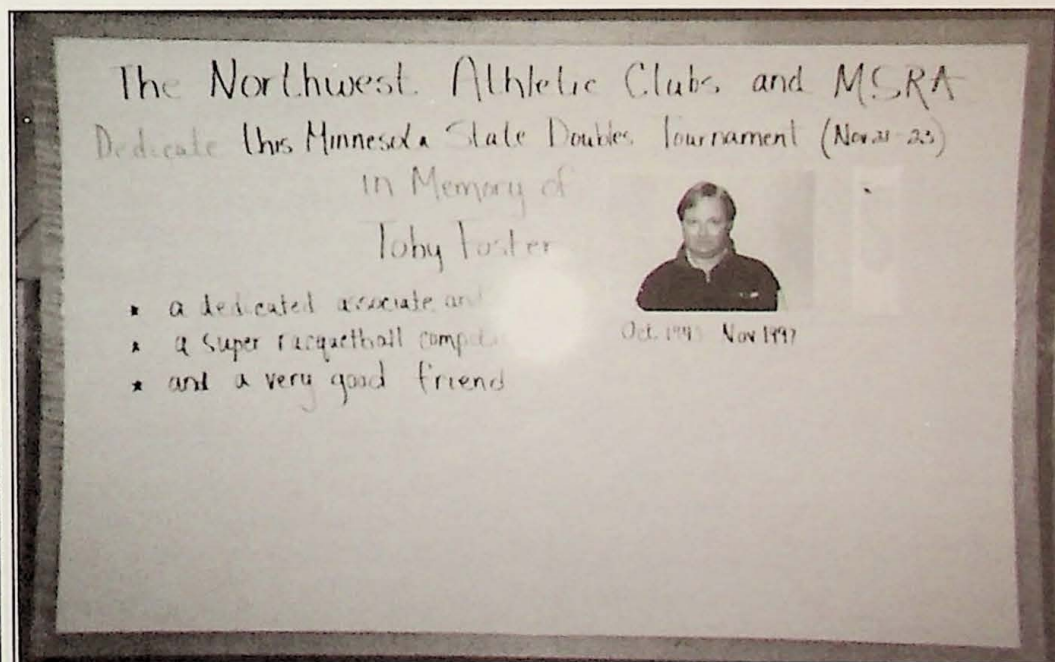 The Northwest Athletic Clubs and MSRA
Dedicate this Minnesota State Doubles Tournament (Nov 21-23)
in Memory of
Toby Foster
* a dedicated associate and
* a super racquetball
* and a very good friend
Oct. Nov 1997